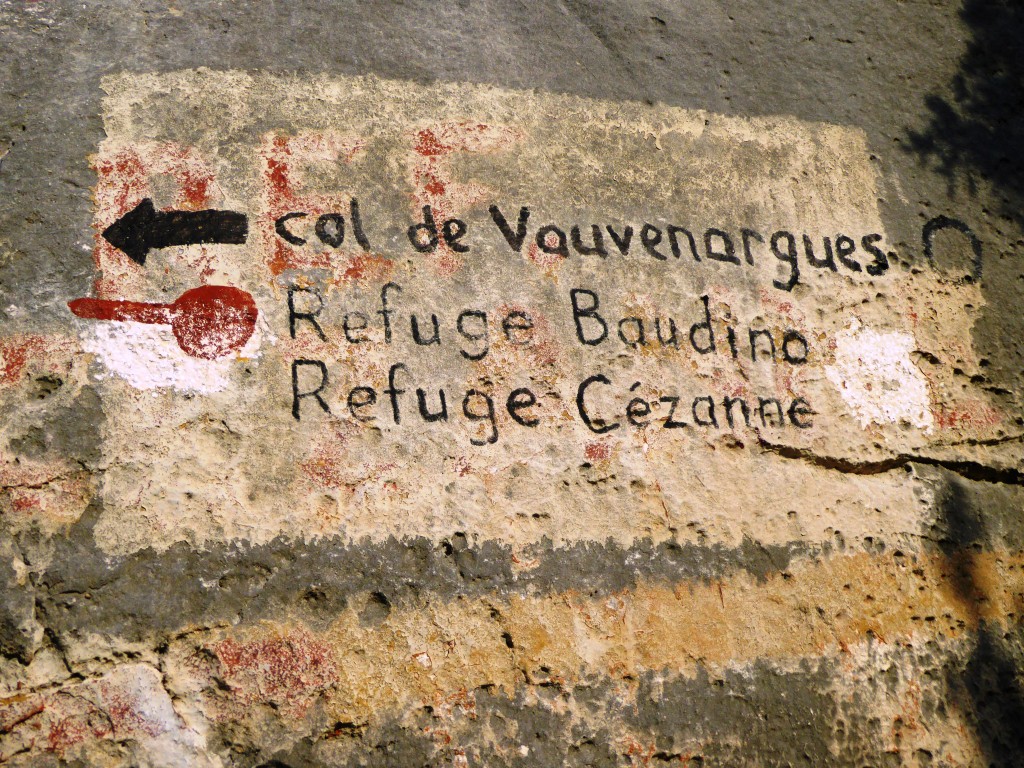 REF
col de Vauvenargues
Refuge Baudino
Refuge Cézanne